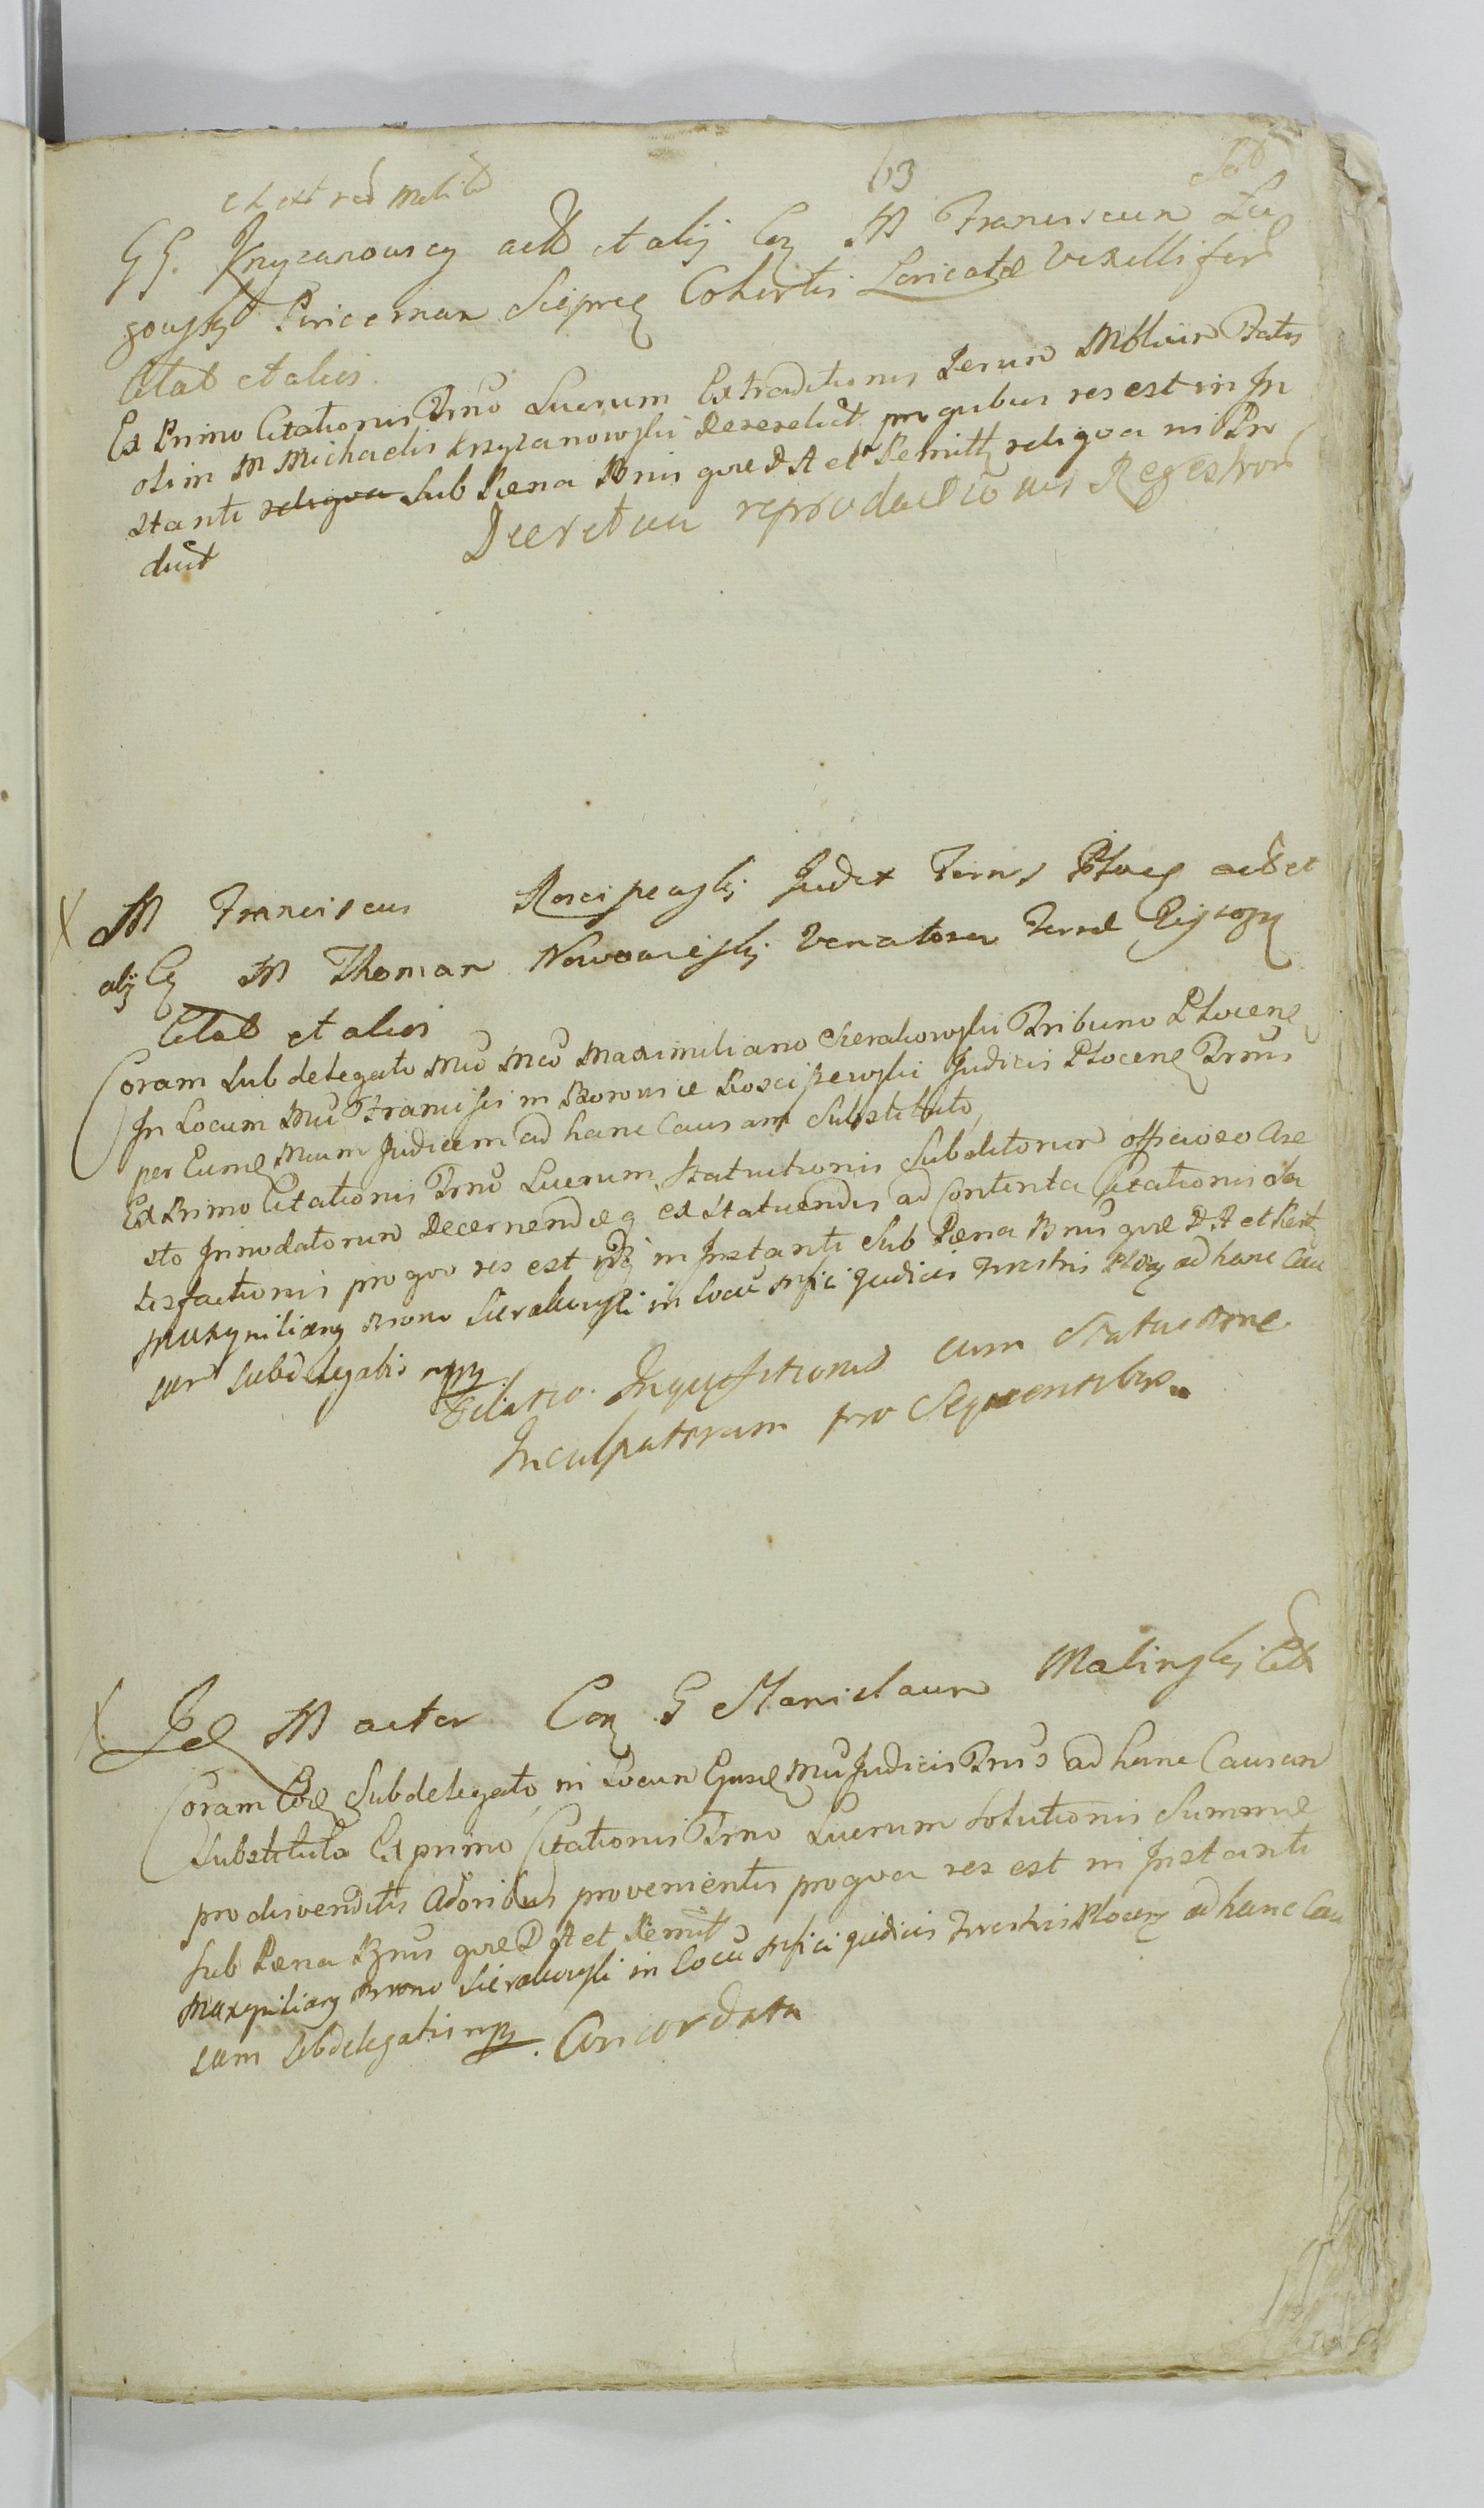 63
GG. Krzyzanowscy act et alij Con M Franciscum Zu
gowski Pincernam Sieprcen Cohortis Loricatæ Vexilliferum
Citat et alios
Ex Primo Citationis Trno Lucrum Extraditionis Rerum Mobilium Fatis
olim M Michaelis Krzyzanowski Derelict pro quibus res est in In
stanti Sub Pœna Bnis quæ D A et Remitt reliqua in Pro
duct
Decretum reproductionis Regestrorum
M Franciscus Kosciszewski Judex Terrs Plocen act et
alij Con M Thomam Nowowieski Venatorem Terræ
Citat et alios
Coram Sub delegato Maximiliano Sierakowski Tribuno Plocen
In Locum Francisci in Borowice Kosciszewski Judicis Plocen Trris
per Eumd Judicem ad hanc Causam Substituto
Ex Primo Citationis Trno Lucrum Statuitionis Subditorum officioso Are
sto Innodatorum Decernend eq ex Statuendis ad Contenta Citationis Sa
tisfactionis pro quo res est in Instanti Sub Pœna Bnis quæ D A et Remit
Maxymiliany Sierakowski in Locu Mfici Judicis Terrestris Plocen ad hanc Cau
sam Subdelegatus mpp
Dilatio Inquisitionis cum Statuitione
Inculpatorum pro Sequentibus
Id M actor Con G Stanislaum Malinski Citt
Coram Eod Subdelegato in Locum Ejusd Judicis Trris ad hanc Causam
Substituto Ex primo Citationis Trno Lucrum Solutionis Summæ
pro divenditis provenientis pro qua res est in Instanti
Sub Pœna Bnis quæ D A et Remit
Maxymiliany Sierakowski in Locu Mfici Judicis Terrestris Plocen ad hanc Cau
sam Subdelegatus mpp. Concordata